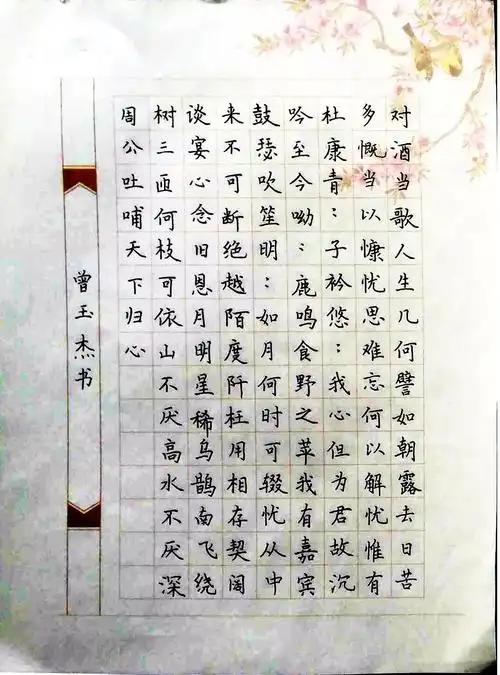 对酒当歌人生几何譬如朝露去日苦
多慨当以慷忧思难忘何以解忧惟有
杜康青：子衿悠：我心但为君故沉
吟至今呦：鹿鸣食野之苹我有嘉宾
鼓瑟吹笙明：如月何时可辍忧从中
来不可断绝越陌度阡枉用相存契阔
谈宴心念旧恩月明星稀乌鹊南飞绕
树三匝何枝可依山不厌高水不厌深
周公吐哺天下归心
曾玉杰书